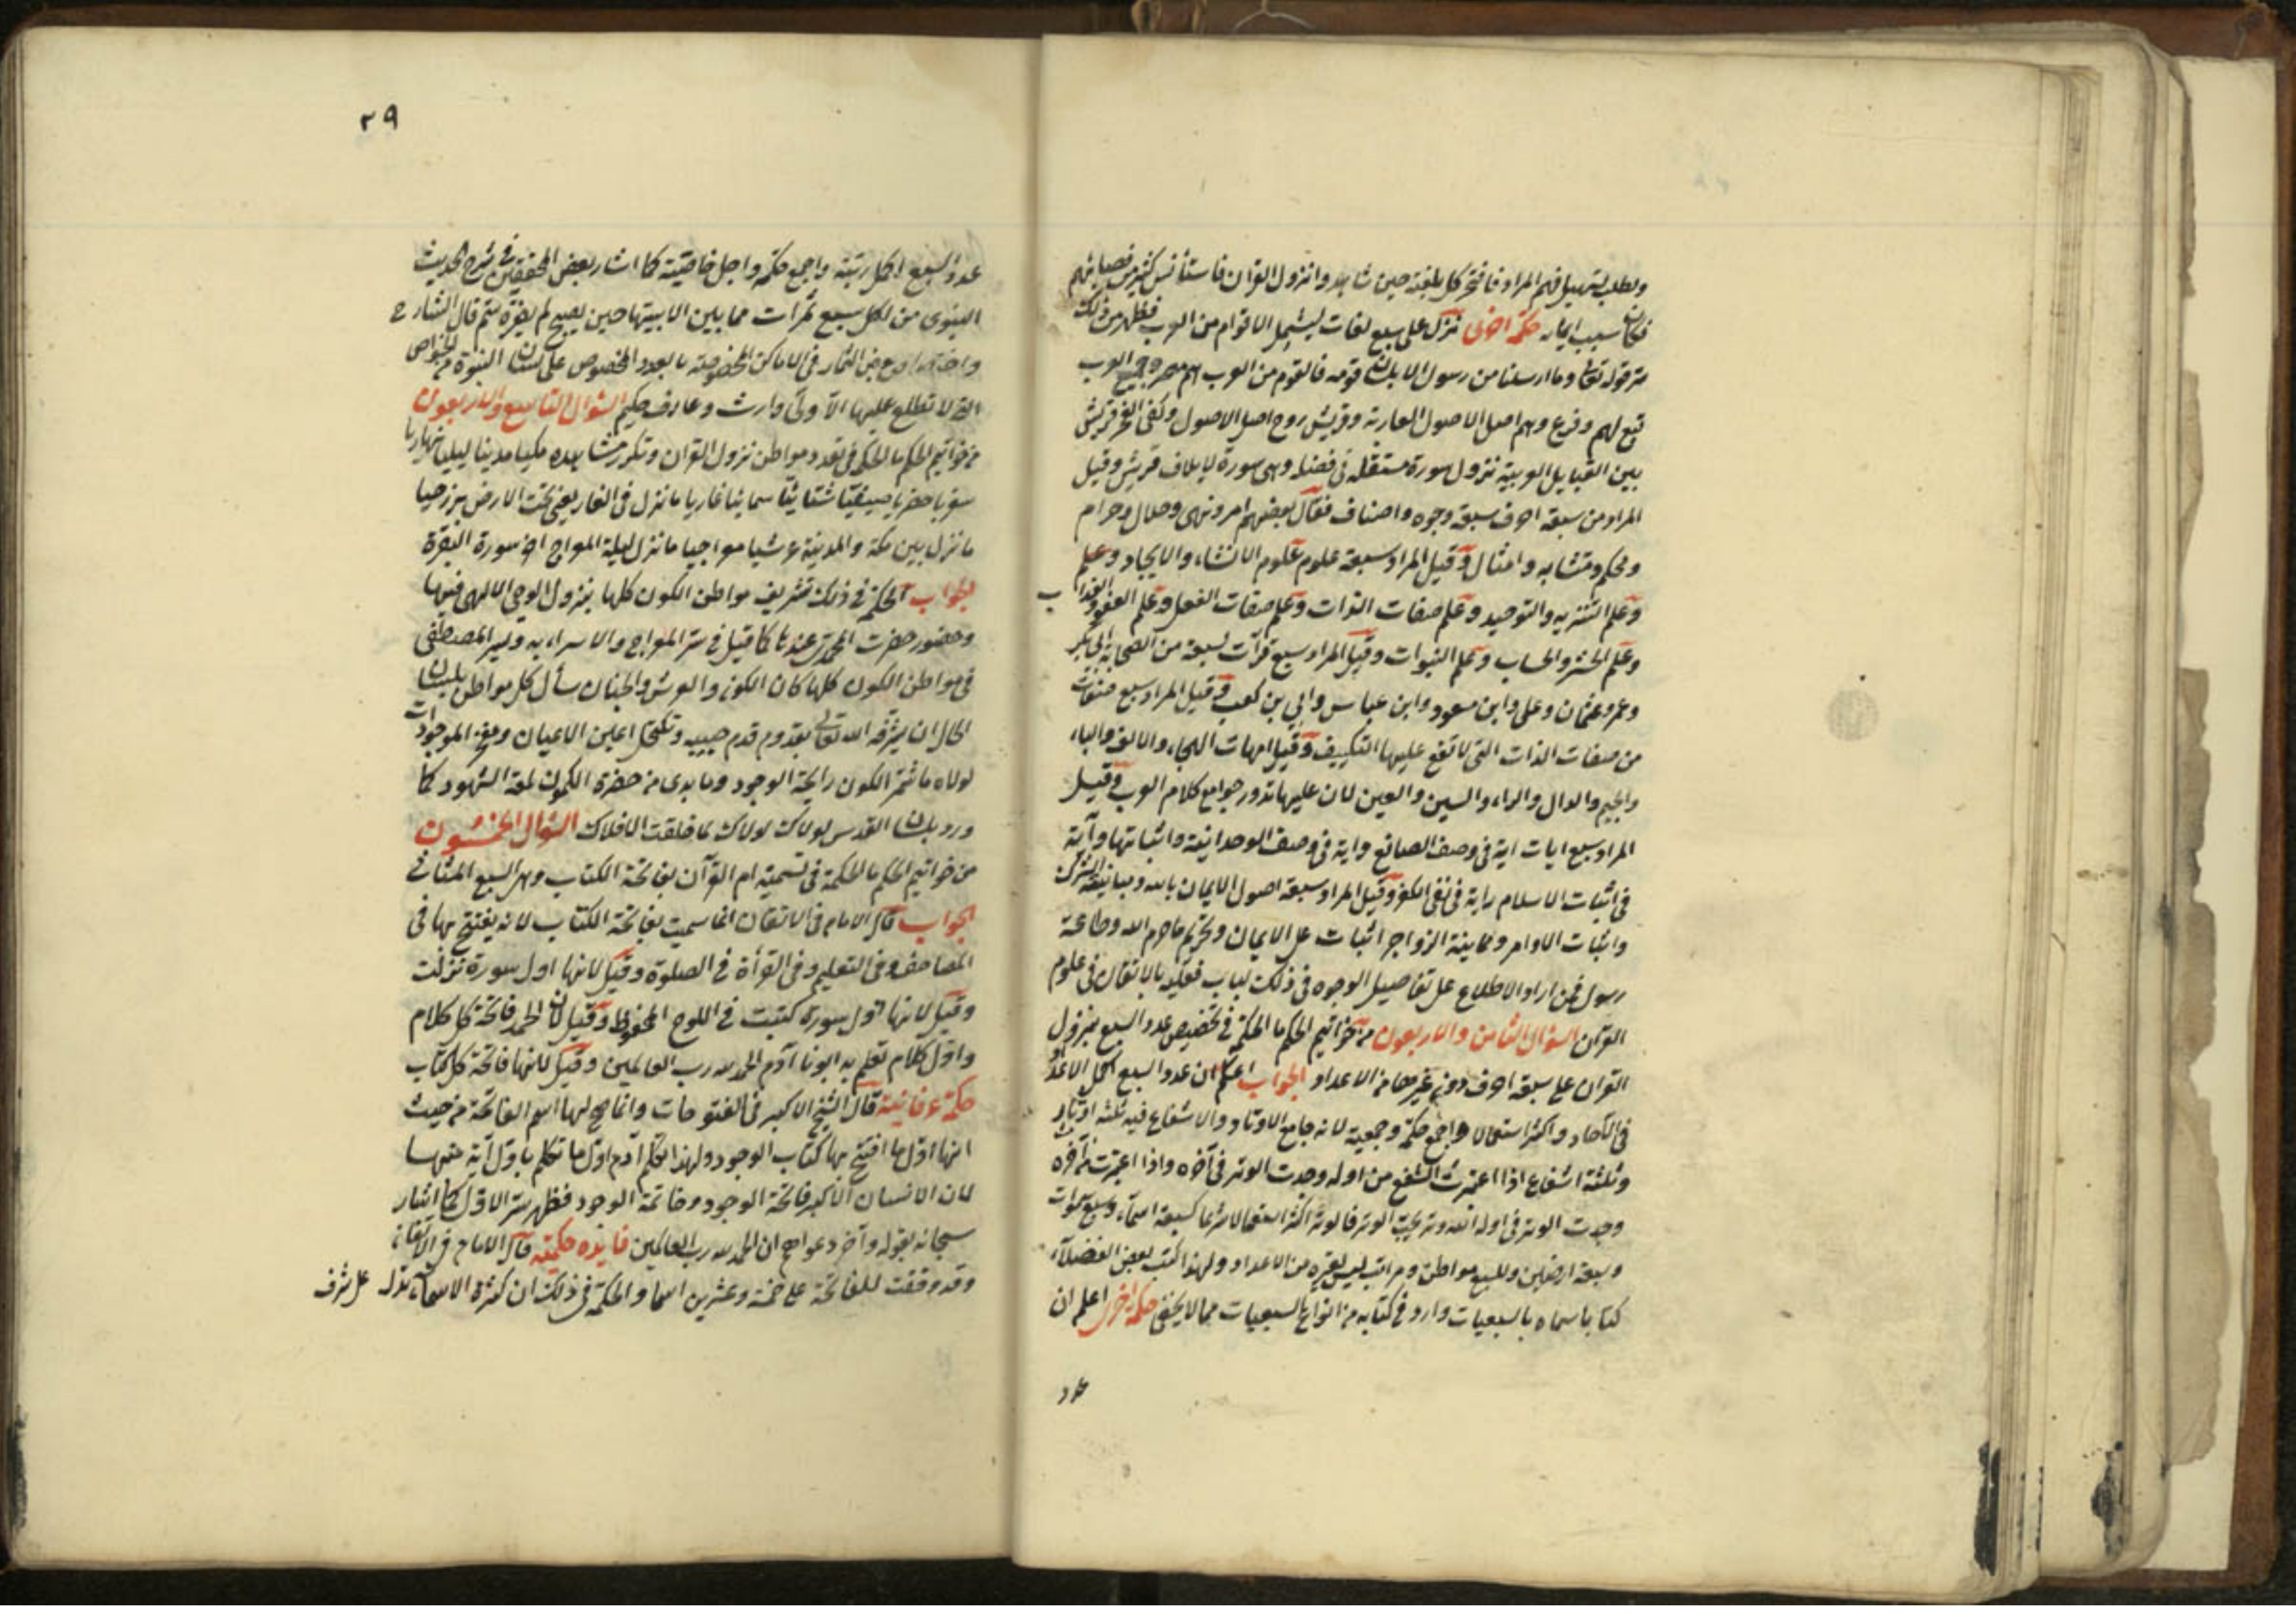 ولطلب تسهيل فهم المراد فافتخر كل بلغته حين شاهدوا نزول القران فاستأنس كثير من فصحائهم
فكان سبب ايمانه حكمة اخرى نزل على سبع لغات ليشمل الاقوام من العرب فظهر من ذلك
سر قوله تعالى وما ارسلنا من رسول الا بلسان قومه فالقوم من العرب هم مضر وجميع العرب
تبع لهم وفرع وهم اصل الاصول العاربة وقريش روح اصل الاصول وكفى الفخر قريش
بين القبايل العربية نزول سورة مستقلة في فضله وهى سورة لايلاف قريش وقيل
المراد من سبعة احرف سبعة وجوه واصناف فقال بعضهم امر ونهى وحلال وحرام
ومحكم ومتشابه وامثال وقيل المراد سبعة علوم علوم الانشاء والايجاد وعلم
وعلم التنزيه والتوحيد وعلم صفات الذات وعلم صفات الفعل وعلم العفو والعذاب
وعلم الحشر والحساب وعلم النبوات وقيل المراد سبع قرآت لسبعة من الصحابة ابى بكر
وعمر وعثمان وعلى وابن مسعود وابن عباس وابي بن كعب وقيل المراد سبع صفات
من صفات الذات التى لا تقع عليها التكييف وقيل امهات الهجاء والالف والباء
والجيم والدال والراء والسين والعين لان عليها تدور جوامع كلام العرب وقيل
المراد سبع ايات اية فى وصف الصانع واية فى وصف الوحدانية واثباتها وآية
فى اثبات الاسلام واية فى نفى الكفر وقيل المراد سبعة اصول الايمان بالله ومباينة الشرك
واثبات الاوامر ومجاينة الزواجر اثبات على الايمان وتحريم ما حرم الله وطاعة
رسوله فمن اراد الاطلاع على تفاصيل الوجوه فى ذلك لباب فعليه بالاتقان فى علوم
القرآن السؤال الثامن والاربعون من خواتيم الحكم ما الحكمة فى تخصيص عدد السبع بنزول
القران على سبعة احرف دون غيرها من الاعداد الجواب اعلم ان عدد السبع اكمل الاعداد
فى الآحاد واكثر استعمالا واجمع حكمة وجمعية لانه جامع الاوتاد والاشفاع فيه ثلثه اوتار
وثلثة اشفاع اذا اعتبرت الشفع من اوله وجدت الوتر فى آخره واذا اعتبرت من آخره
وجدت الوتر فى اوله الله وتر يحب الوتر فالوتر اكثر استعمالا شرعا كسبعة اسماء وسبع سموات
وسبعة ارضين وللسبع مواطن ومراتب ليس لغيره من الاعداد ولهذا كتب بعض الفضلاء
كتابا سماه بالسبعيات وارد فى كتابه من انواع السبعيات مما لا يخفى حكمة اخرى اعلم ان
عدد
٢٩
عدد السبع اكمل رتبة واجمع حكمة واجل خاصية كما اشار بعض المحققين فى شرح الحديث
النبوى من اكل سبع تمرات مما بين لابيتها حين يصبح لم يضره سم قال الشارح
واختصاص بعض الثمار فى الاماكن المخصوصة بالعدد المخصوص على لسان النبوة من الخواص
التى لا تطلع عليها الا ولى وارث وعارف حكيم السؤال التاسع والاربعون
من خواتيم الحكم ما الحكمة فى تعدد مواطن نزول القران وتكرر مشاهده مكيا مدينا ليليا نهاريا
سفريا حضريا صيفيا شتائيا سمائيا غاريا ما نزل فى الغار يعنى تحت الارض برزخيا
ما نزل بين مكة والمدينة عرشيا معراجيا ما نزل ليلة المعراج اخر سورة البقرة
الجواب الحكمة فى ذلك تشريف مواطن الكون كلها بنزول الوحى الالهى فيها
وحضور حضرت المحمدى عندنا كما قيل فى سر المعراج والاسراء به وسير المصطفى
فى مواطن الكون كلها كان الكون والعرش والجنان سأل كل مواطن بلسان
الحال ان يشرفه الله تعالى بقدوم قدم حبيبه وتكتحل اعين الاعيان ومهجة الموجودات
لولاه ما شم الكون رايحة الوجود وما بدى من حضرة الكمون لمعة الشهود كما
ورد بلسان القدس لولاك لولاك لما خلقت الافلاك السؤال الخمسون
من خواتيم الحكم ما الحكمة فى تسمية ام القرآن بفاتحة الكتاب وهى السبع المثانى
الجواب قال الامام فى الاتقان انما سميت بفاتحة الكتاب لانه يفتتح بها فى
المصاحف وفى التعليم وفى القرأة فى الصلوة وقيل لانها اول سورة نزلت
وقيل لانها اول سورة كتبت فى اللوح المحفوظ وقيل لان الحمد فاتحة كل كلام
واول كلام تعلم به ابونا آدم الحمد لله رب العالمين وقيل لانها فاتحة كل كتاب
حكمة عرفانية قال الشيخ الاكبر فى الفتوحات وانما صح لها اسم الفاتحة من حيث
انها اول ما افتتح بها كتاب الوجود ولهذا تكلم آدم اول ما تكلم باول آية منها
لان الانسان الاكبر فاتحة الوجود وخاتمة الوجود فظهر سر الاول كما اشار
سبحانه بقوله وآخر دعواهم ان الحمد لله رب العالمين فايده حكمية قال الامام فى الاتقان
وقد وقفت للفاتحة على خمسة وعشرين اسما والحكمة فى ذلك ان كثرة الاسماء تدل على شرف